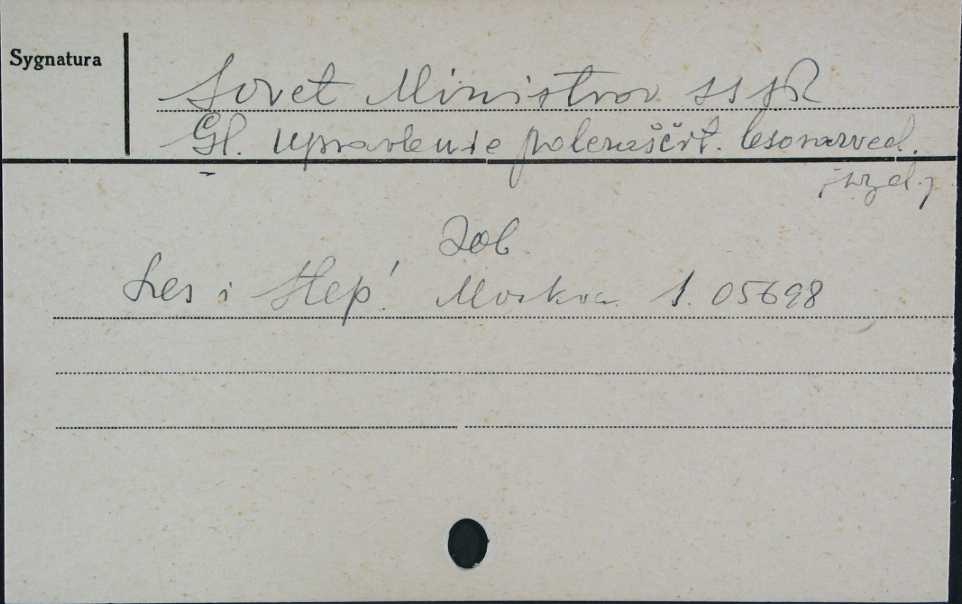 Sygnatura
Sovet Ministrov SSSR
Gl. upravlenie polezaščit. lesorazved.
[wyd.]
Zob.
Les i step'. Moskva S. 05698